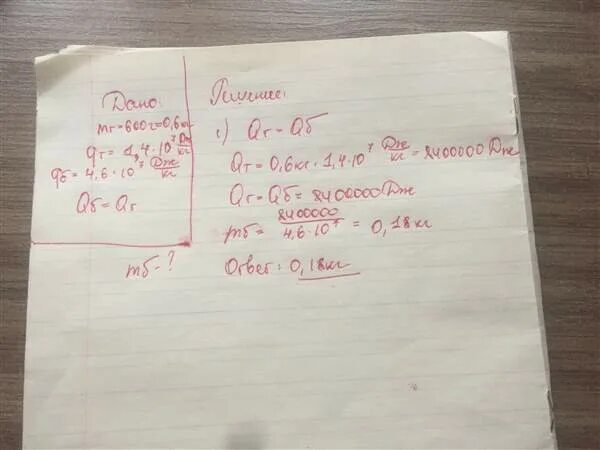 Дано:
mт=600г=0,6кг
qт = 1,4·10⁷ Дж/кг
qб = 4,6·10⁷ Дж/кг
Qб = Qт
mб-?
Решение:
1) Qт = Qб
Qт = 0,6кг · 1,4·10⁷ Дж/кг = 8400000 Дж
Qт = Qб = 8400000 Дж
mб = 8400000 / 4,6·10⁷ = 0,18кг
Ответ: 0,18кг